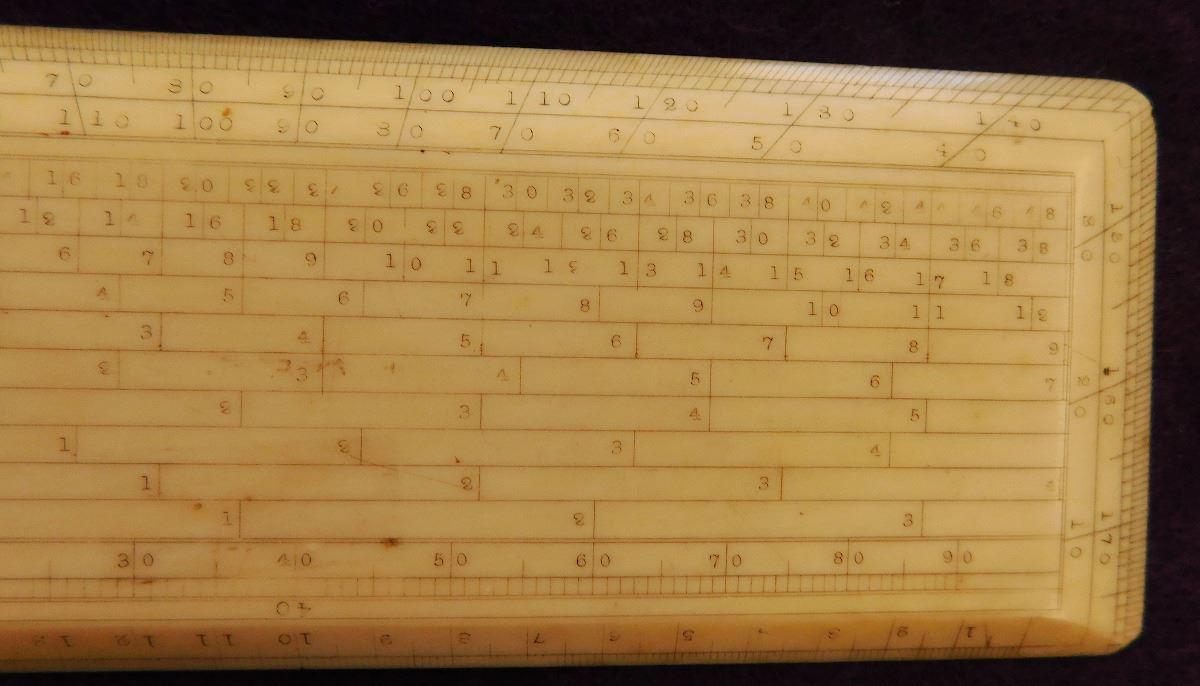 70 80 90 100 110 120 130 140
110 100 90 80 70 60 50 40
16 18 20 22 28 30 32 34 36 38 40 42 44 46 48
12 14 16 18 20 22 24 26 28 30 32 34 36 38
6 7 8 9 10 11 12 13 14 15 16 17 18
4 5 6 7 8 9 10 11 12
3 4 5 6 7 8 9
2 3 4 5 6 7
2 3 4 5
1 2 3 4
1 2 3 4
1 2 3
30 40 50 60 70 80 90
40
12 11 10 9 8 7 6 5 4 3 2 1
160
20
170
10